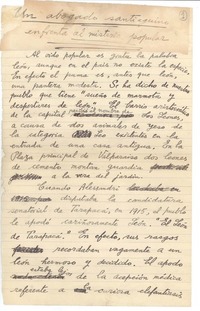 Un abogado santiaguino
enfrenta al mito popular
Al oído popular es grata la palabra
león, aunque en el país no existe la especie.
En efecto el puma es, antes que león,
una pantera modesta. Se ha dicho de nuestro
pueblo que tiene "sueño de marmota y
despertares de león". El barrio aristocrático
de la capital Los Leones
a causa de dos animales de yeso
la categoría Leo existía en la
entrada de una casa antigua. En la
Plaza principal de Valparaíso dos leones
de guardia
a la vera del jardín.
Cuando Alessandri
disputaba la candidatura
senatorial de Tarapacá, en 1915, el pueblo
lo apodó cariñosamente León. "El León
de Tarapacá". En efecto, sus rasgos
recordaban vagamente a un
león hermoso y decidido. El apodo
de la acepción médica
referente a la curiosa elefantiasis